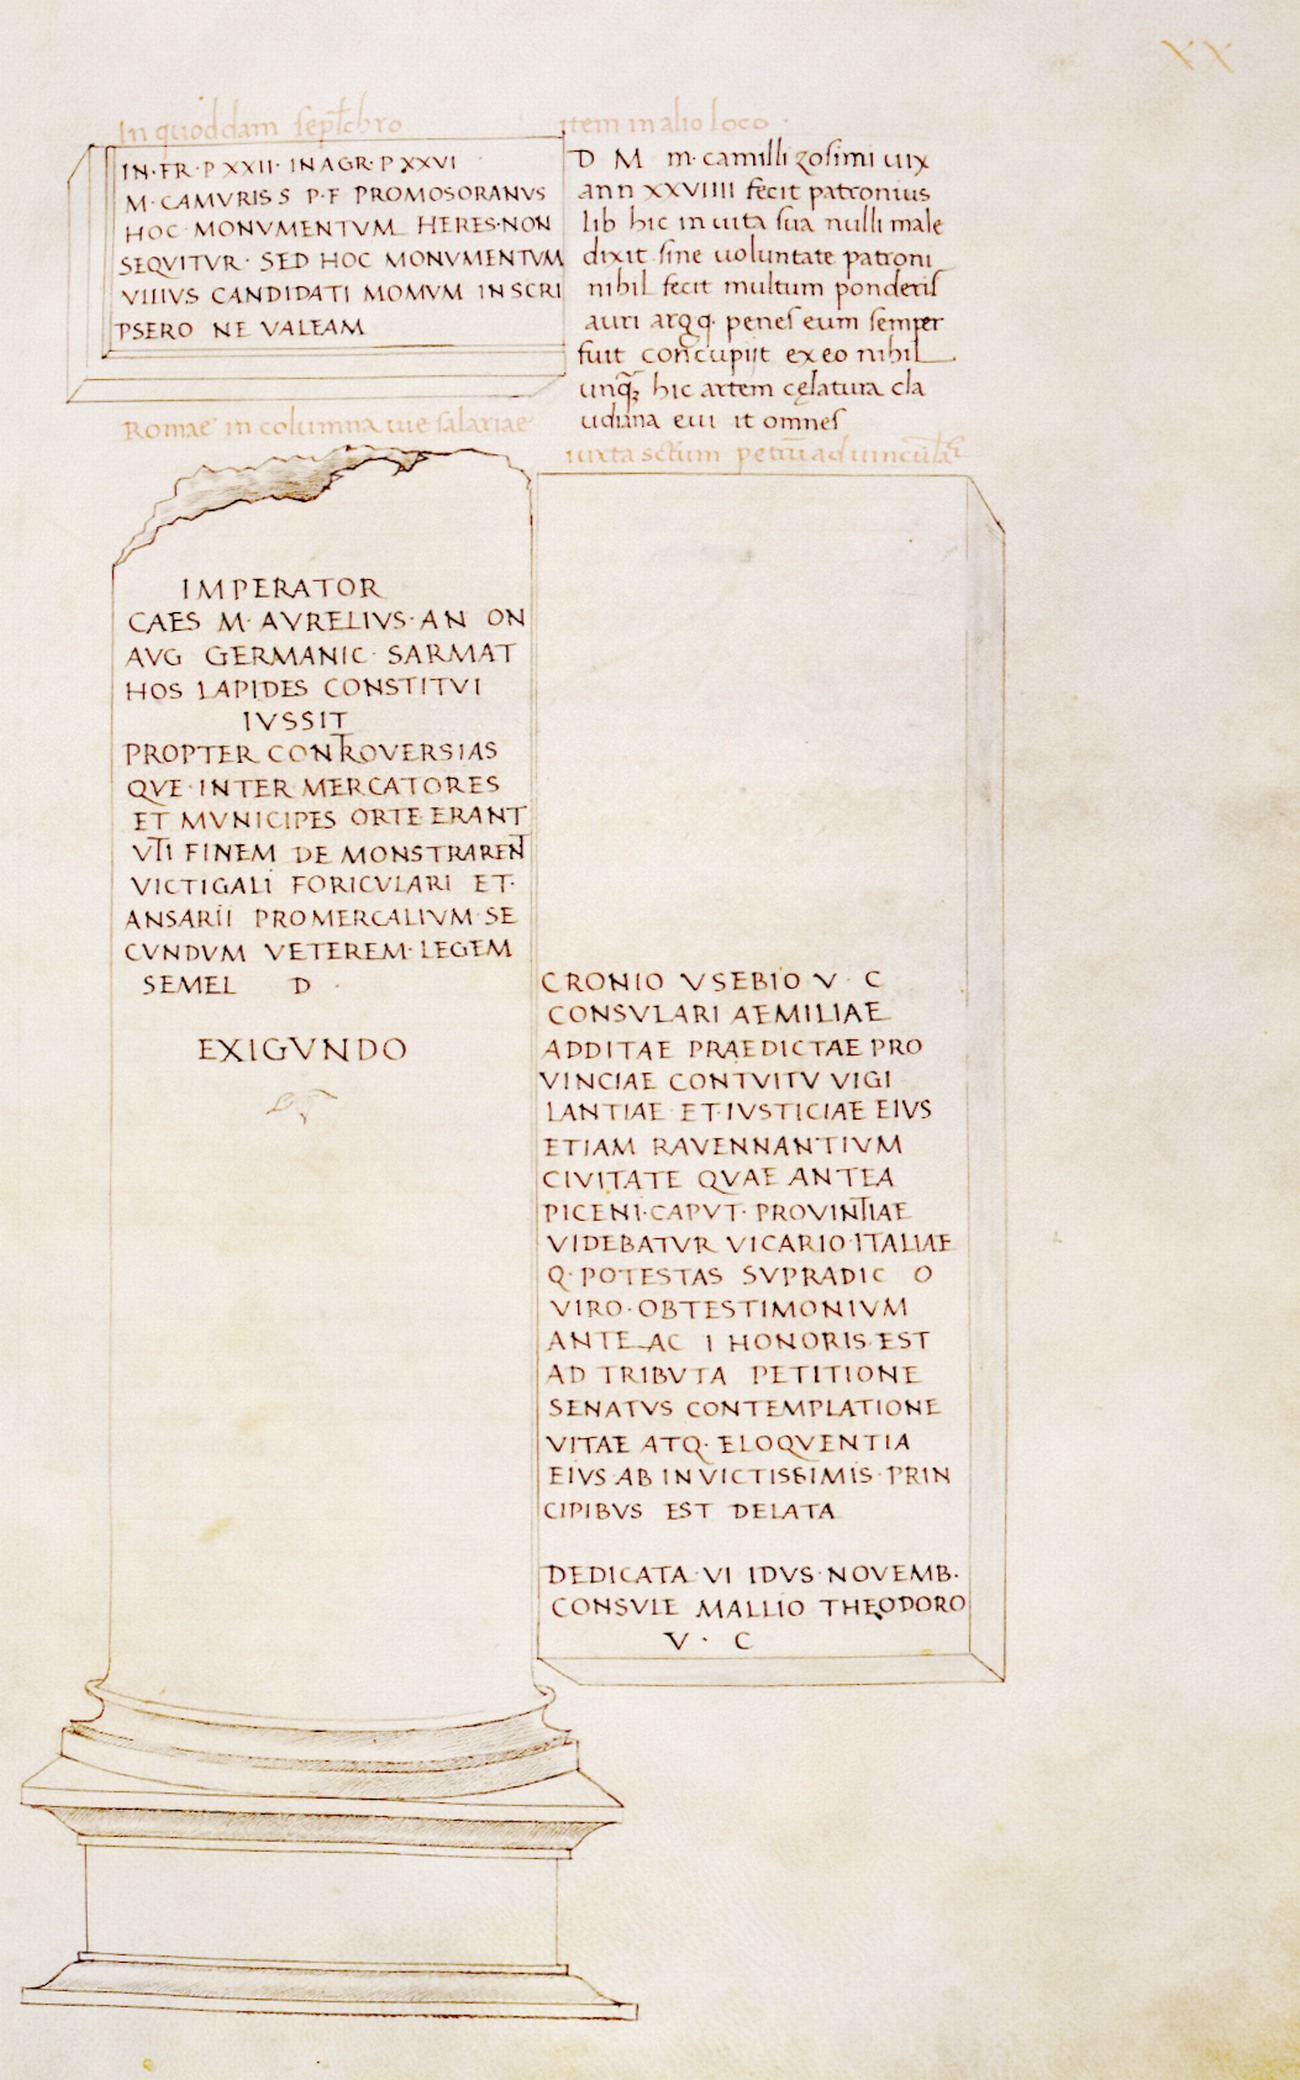 XX
In quoddam sepl̄chro
IN·FR·P XXII· IN AGR·P XXVI
M·CAMVRIS S P·F PROMOSORANVS
HOC MONVMENTVM HERES·NON
SEQVITVR· SED HOC MONVMENTVM
VIIIVS CANDIDATI MOMVM INSCRI
PSERO NE VALEAM
item in alio loco ·
D M m· camilli zosimi uix
ann XXVIIII fecit patronius
lib hic in uita sua nulli male
dixit sine uoluntate patroni
nihil fecit multum ponderis
auri argq· penes eum semper
fuit concupijt ex eo nihil
unq̄ȝ hic artem cęlatura cla
udiana eui it omnes
Romae in columna uie salariae
IMPERATOR
CAES M· AVRELIVS·AN ON
AVG GERMANIC· SARMAT
HOS LAPIDES CONSTITVI
IVSSIT
PROPTER CONTROVERSIAS
QVE·INTER MERCATORES
ET MVNICIPES ORTE ERANT
VTI FINEM DE MONSTRARENT
VICTIGALI FORICVLARI ET·
ANSARII PROMERCALIVM SE
CVNDVM VETEREM·LEGEM
SEMEL D ·
EXIGVNDO
iuxta sctum petrū ad uincula
CRONIO VSEBIO V · C
CONSVLARI AEMILIAE
ADDITAE PRAEDICTAE PRO
VINCIAE CONTVITV VIGI
LANTIAE ET·IVSTICIAE EIVS
ETIAM RAVENNANTIVM
CIVITATE QVAE ANTEA
PICENI·CAPVT·PROVINTIAE
VIDEBATVR VICARIO·ITALIAE
Q·POTESTAS SVPRADIC O
VIRO·OBTESTIMONIVM
ANTE AC I HONORIS·EST
AD TRIBVTA PETITIONE
SENATVS CONTEMPLATIONE
VITAE ATQ·ELOQVENTIA
EIVS·AB INVICTISSIMIS·PRIN
CIPIBVS EST DELATA
DEDICATA·VI IDVS·NOVEMB·
CONSVLE MALLIO THEODORO
V · C